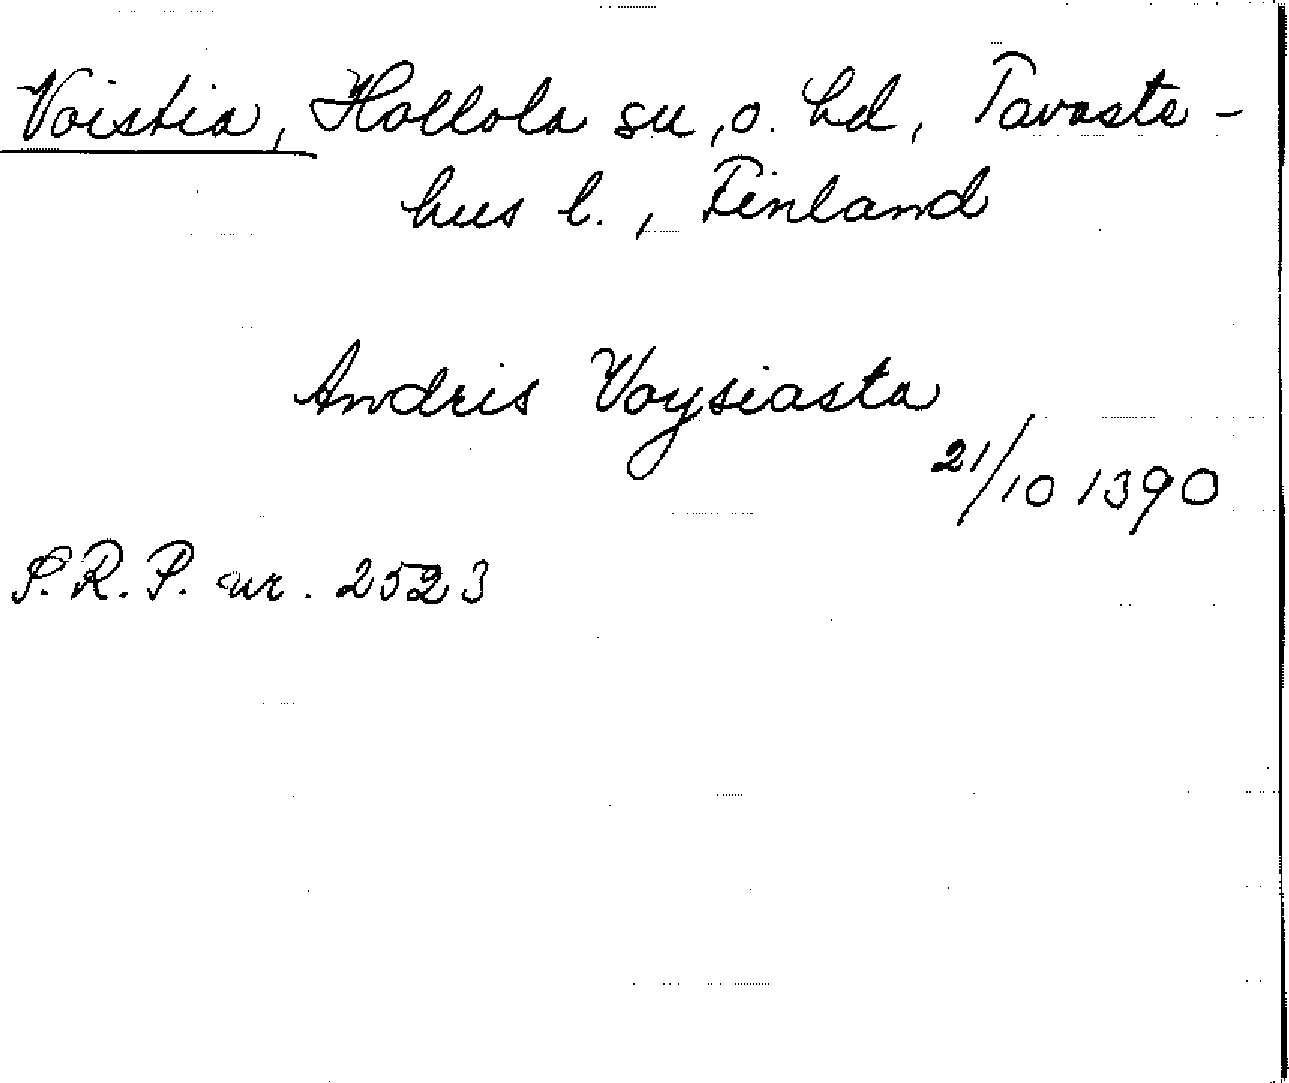 Voistia, Hollola su, o. hd, Tavaste-
hus l., Finland
Andris Voysiasta
21/10 1390
S.R.P. nr. 2523